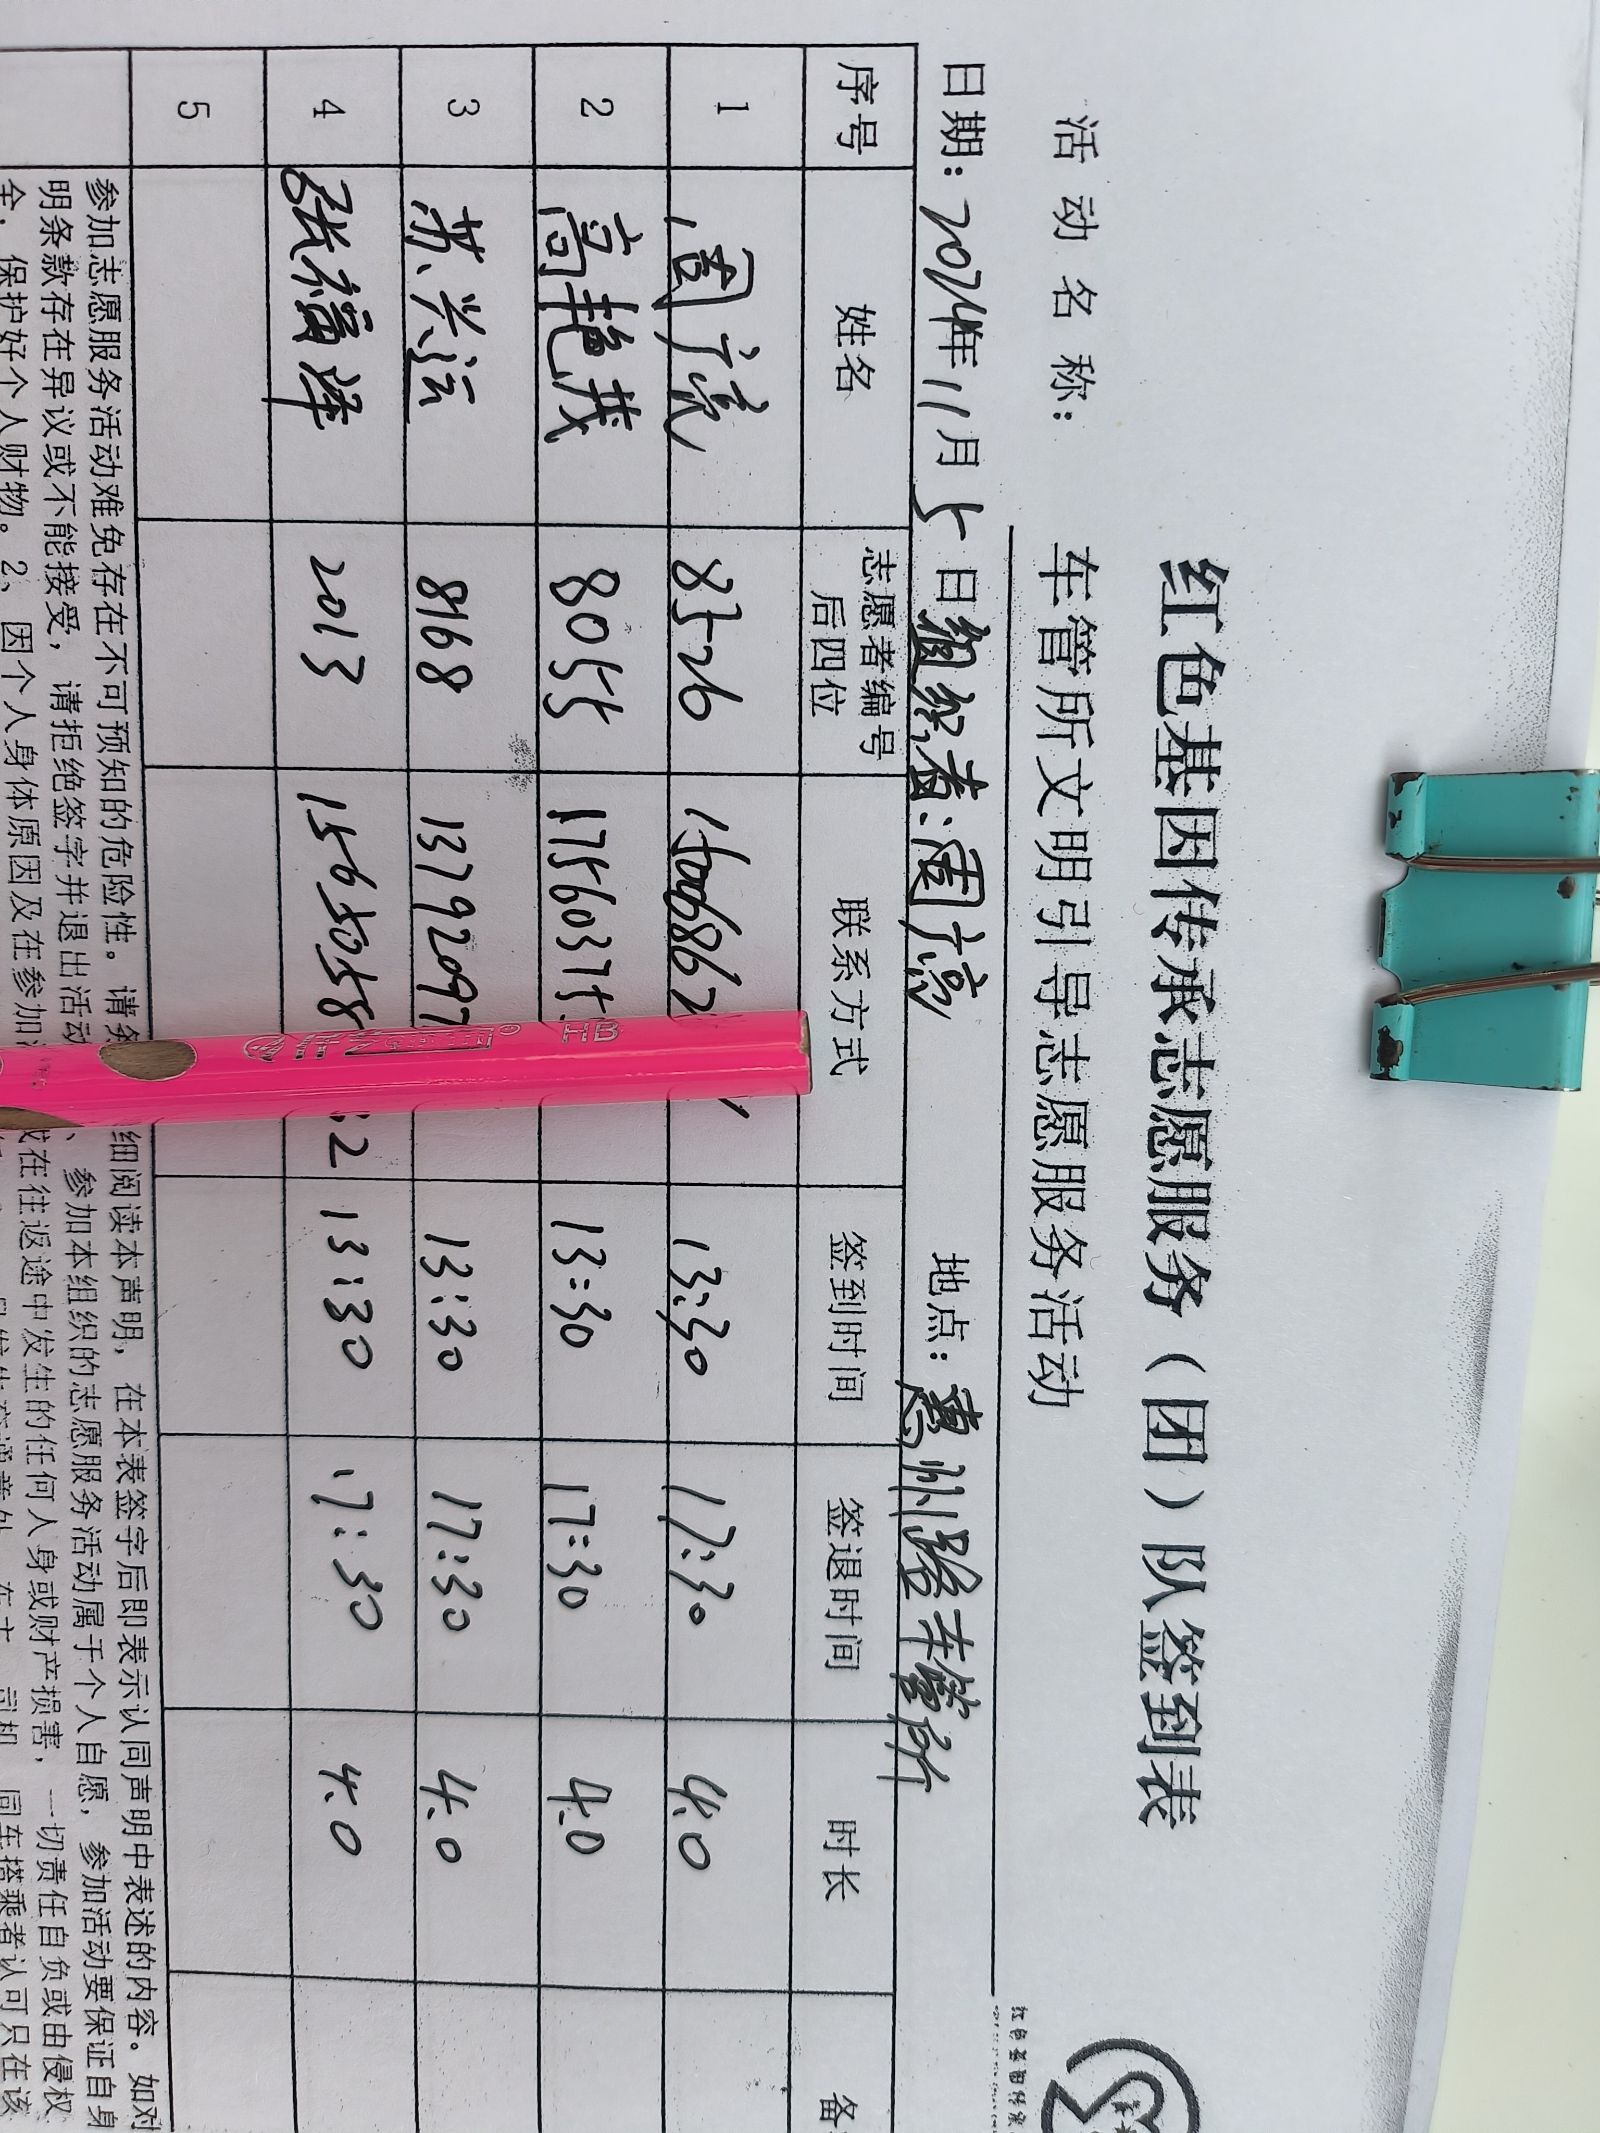 红色基因传承志愿服务（团）队签到表
活动名称： 车管所文明引导志愿服务活动
日期：2024年11月5日 组织者：周广亮 地点：惠州路车管所
序号 姓名 志愿者编号后四位 联系方式 签到时间 签退时间 时长 备
1 周广亮 8526 13:30 17:30 4.0
2 高艳茂 8055 1756037 13:30 17:30 4.0
3 苏兴运 8168 13792097 13:30 17:30 4.0
4 张福萍 2013 1565058 2 13:30 17:30 4.0
5
参加志愿服务活动难免存在不可预知的危险性。请务 细阅读本声明，在本表签字后即表示认同声明中表述的内容。如对
明条款存在异议或不能接受，请拒绝签字并退出活动 、参加本组织的志愿服务活动属于个人自愿，参加活动要保证自身
全，保护好个人财物。2、因个人身体原因及在参加 或在往返途中发生的任何人身或财产损害，一切责任自负或由侵权
同车搭乘者认可只在该